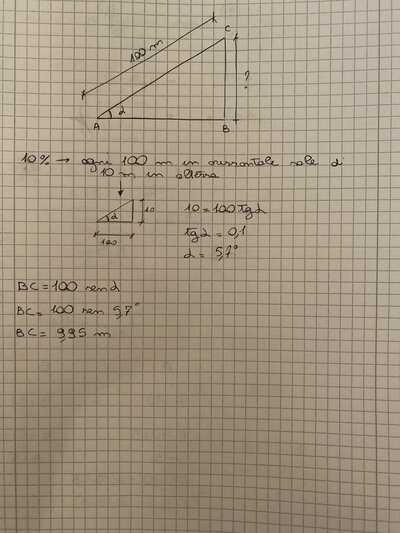 100 m
C
?
A
α
B
10% → ogni 100 m in orizzontale sale di
10 m in altezza
α
10
100
10 = 100 tgα
tgα = 0,1
α = 5,7°
BC = 100 senα
BC = 100 sen 5,7°
BC = 9,95 m